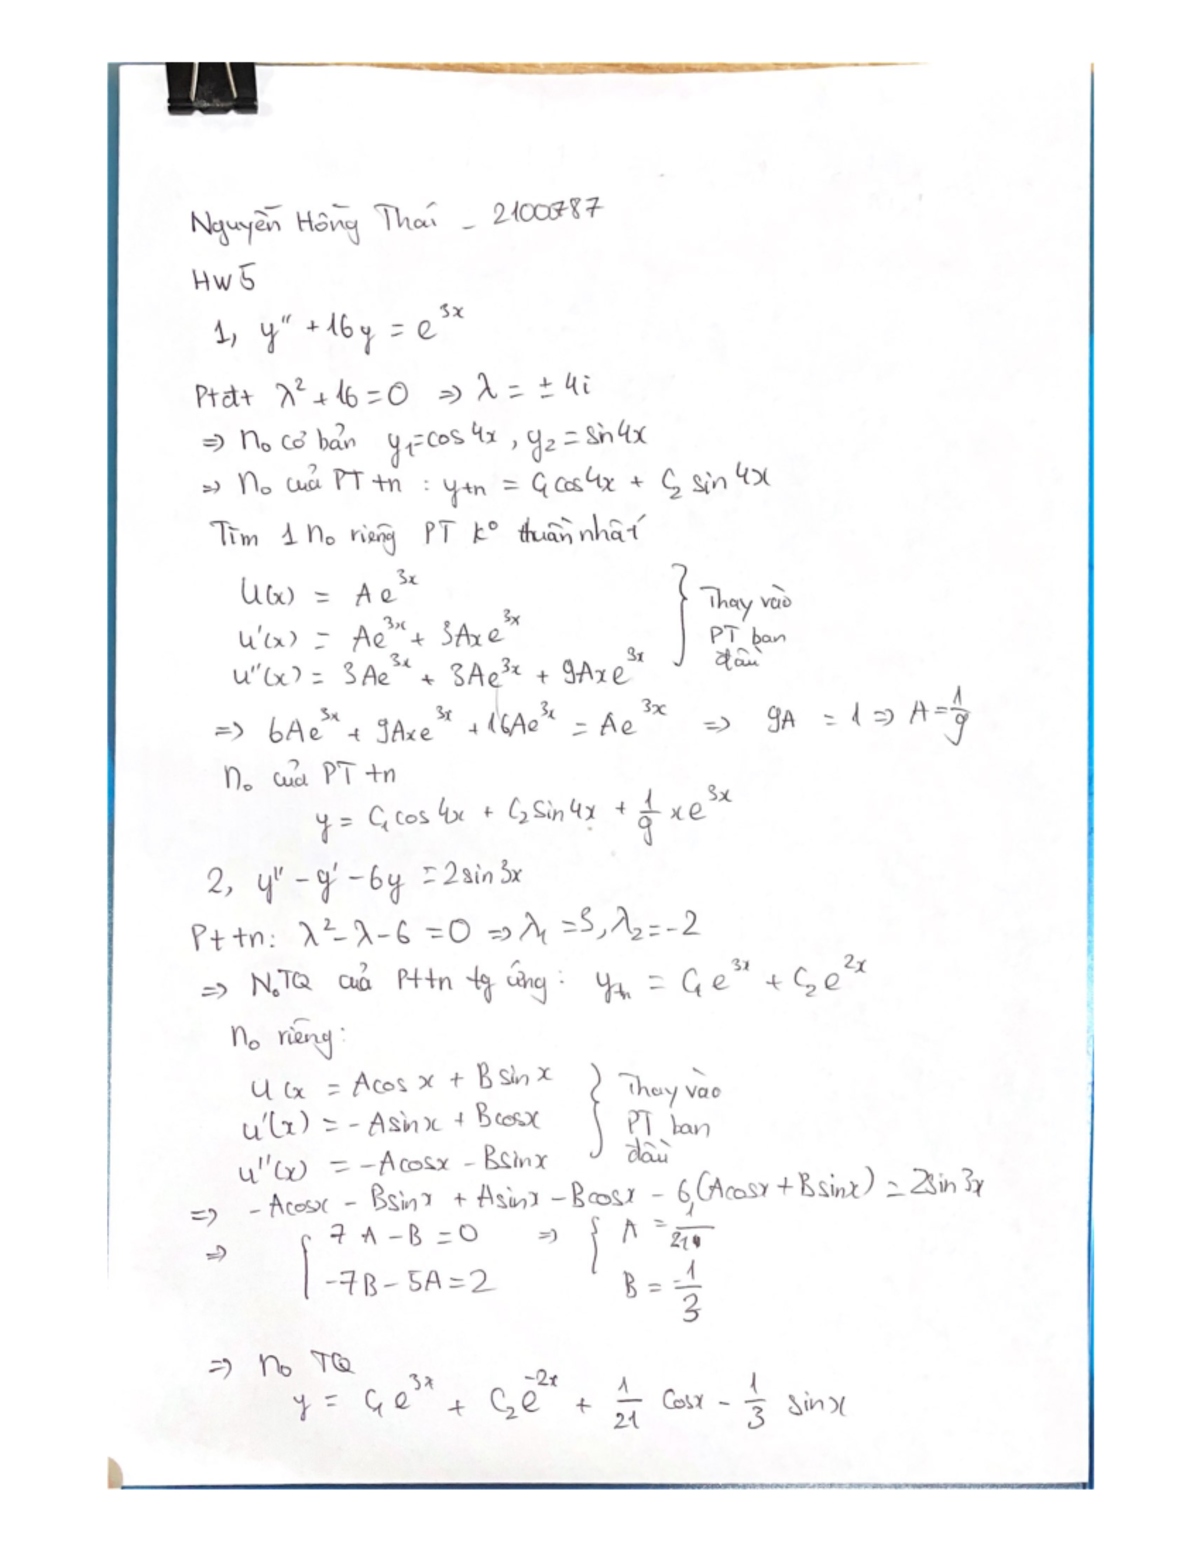 Nguyễn Hồng Thái - 2100787
HW5
1, y'' + 16y = e^{3x}
Ptđt λ² + 16 = 0 ⇒ λ = ± 4i
⇒ n₀ cơ bản y₁ = cos 4x, y₂ = sin 4x
⇒ n₀ của PT tn : ytn = C₁ cos 4x + C₂ sin 4x
Tìm 1 n₀ riêng PT k° thuần nhất
U(x) = Ae^{3x}
u'(x) = Ae^{3x} + 3Axe^{3x} } Thay vào PT ban đầu
u''(x) = 3Ae^{3x} + 3Ae^{3x} + 9Axe^{3x}
⇒ 6Ae^{3x} + 9Axe^{3x} + 16Ae^{3x} = Ae^{3x} ⇒ 9A = 1 ⇒ A = 1/9
n₀ của PT tn
y = C₁ cos 4x + C₂ sin 4x + 1/9 xe^{3x}
2, y'' - y' - 6y = 2 sin 3x
Pt tn: λ² - λ - 6 = 0 ⇒ λ₁ = 3, λ₂ = -2
⇒ N₀TQ của Pttn tg ứng: ytn = C₁e^{3x} + C₂e^{2x}
n₀ riêng:
u(x = Acos x + B sin x
u'(x) = - Asinx + Bcosx } Thay vào PT ban đầu
u''(x) = -Acosx - Bsinx
⇒ -Acosx - Bsinx + Asinx - Bcosx - 6(Acosx + Bsinx) = 2sin 3x
⇒ { 7A - B = 0 ⇒ { A = 1/21
-7B - 5A = 2 B = -1/3
⇒ n₀ TQ
y = C₁e^{3x} + C₂e^{-2x} + 1/21 cosx - 1/3 sinx